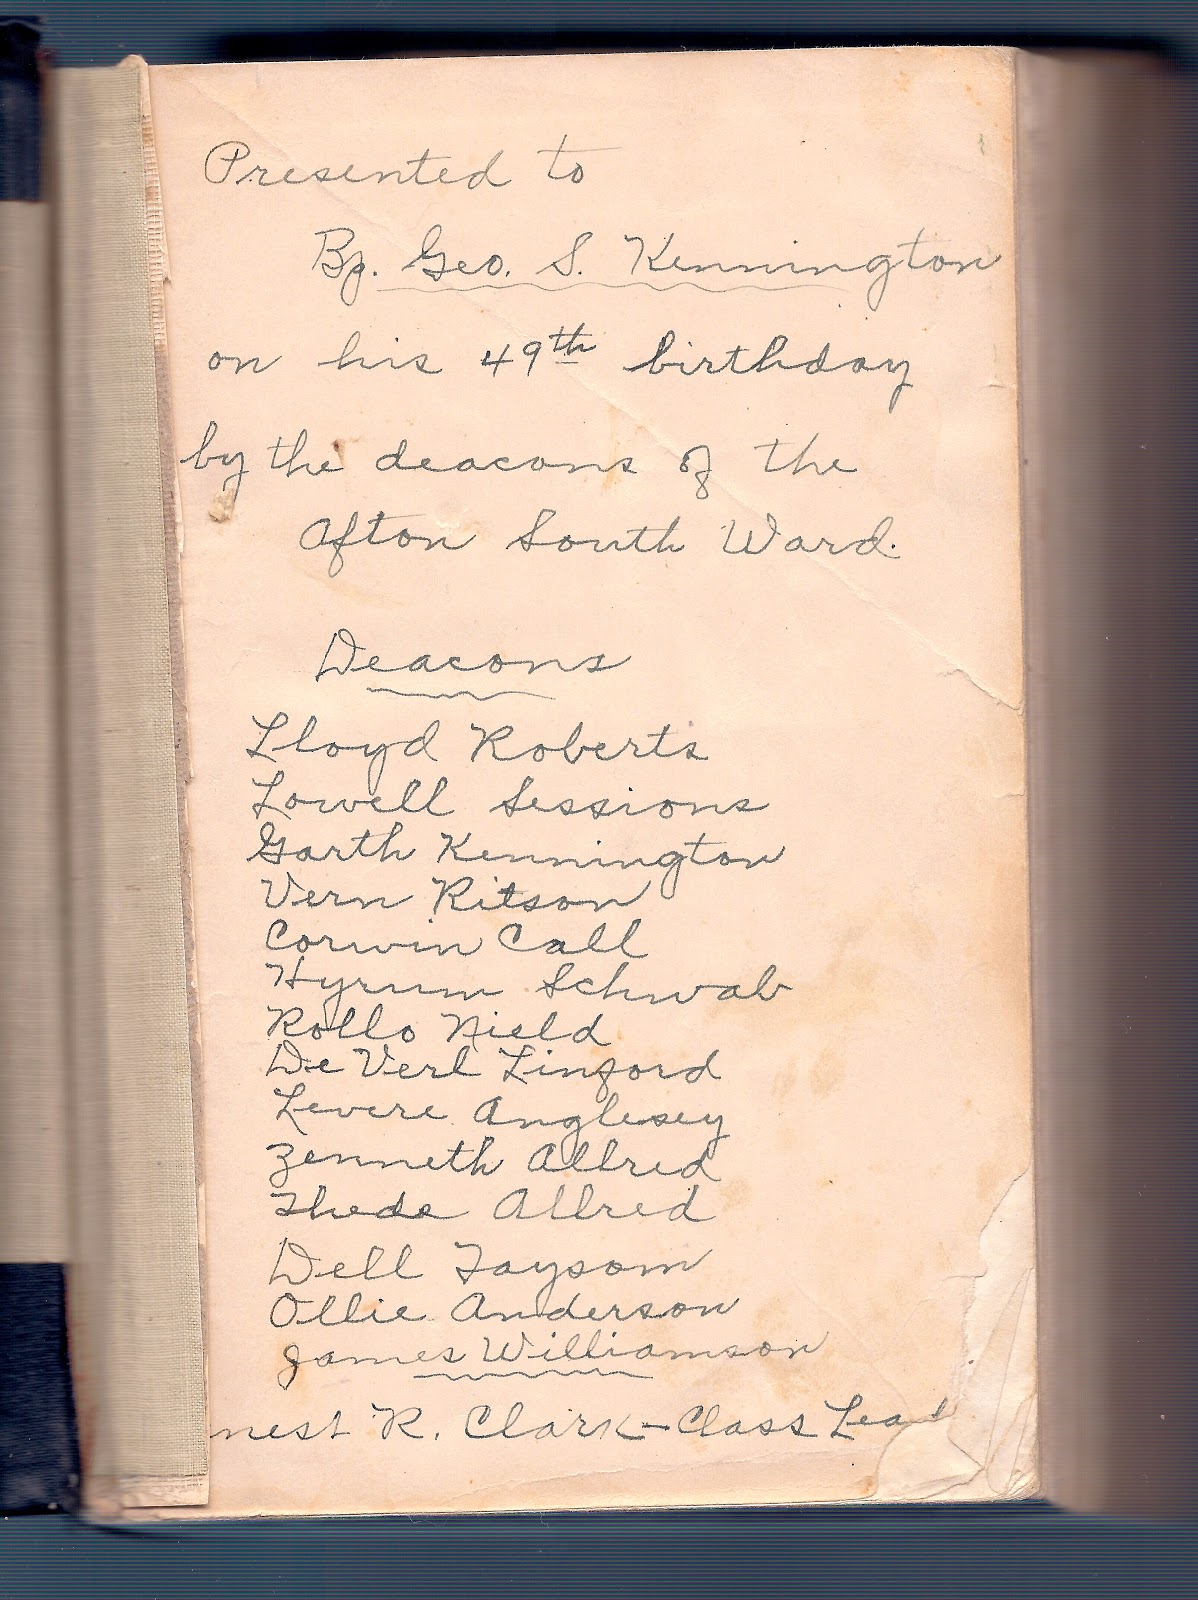 Presented to
Bp. Geo. S. Kennington
on his 49th birthday
by the deacons of the
Afton South Ward.
Deacons
Lloyd Roberts
Lowell Sessions
Garth Kennington
Vern Kitson
Corwin Call
Hyrum Schwab
Rollo Nield
De Verl Linford
Levere Anglesey
Zenneth Allred
Thede Allred
Dell Taysom
Ollie Anderson
James Williamson
nest R. Clark-Class Lead